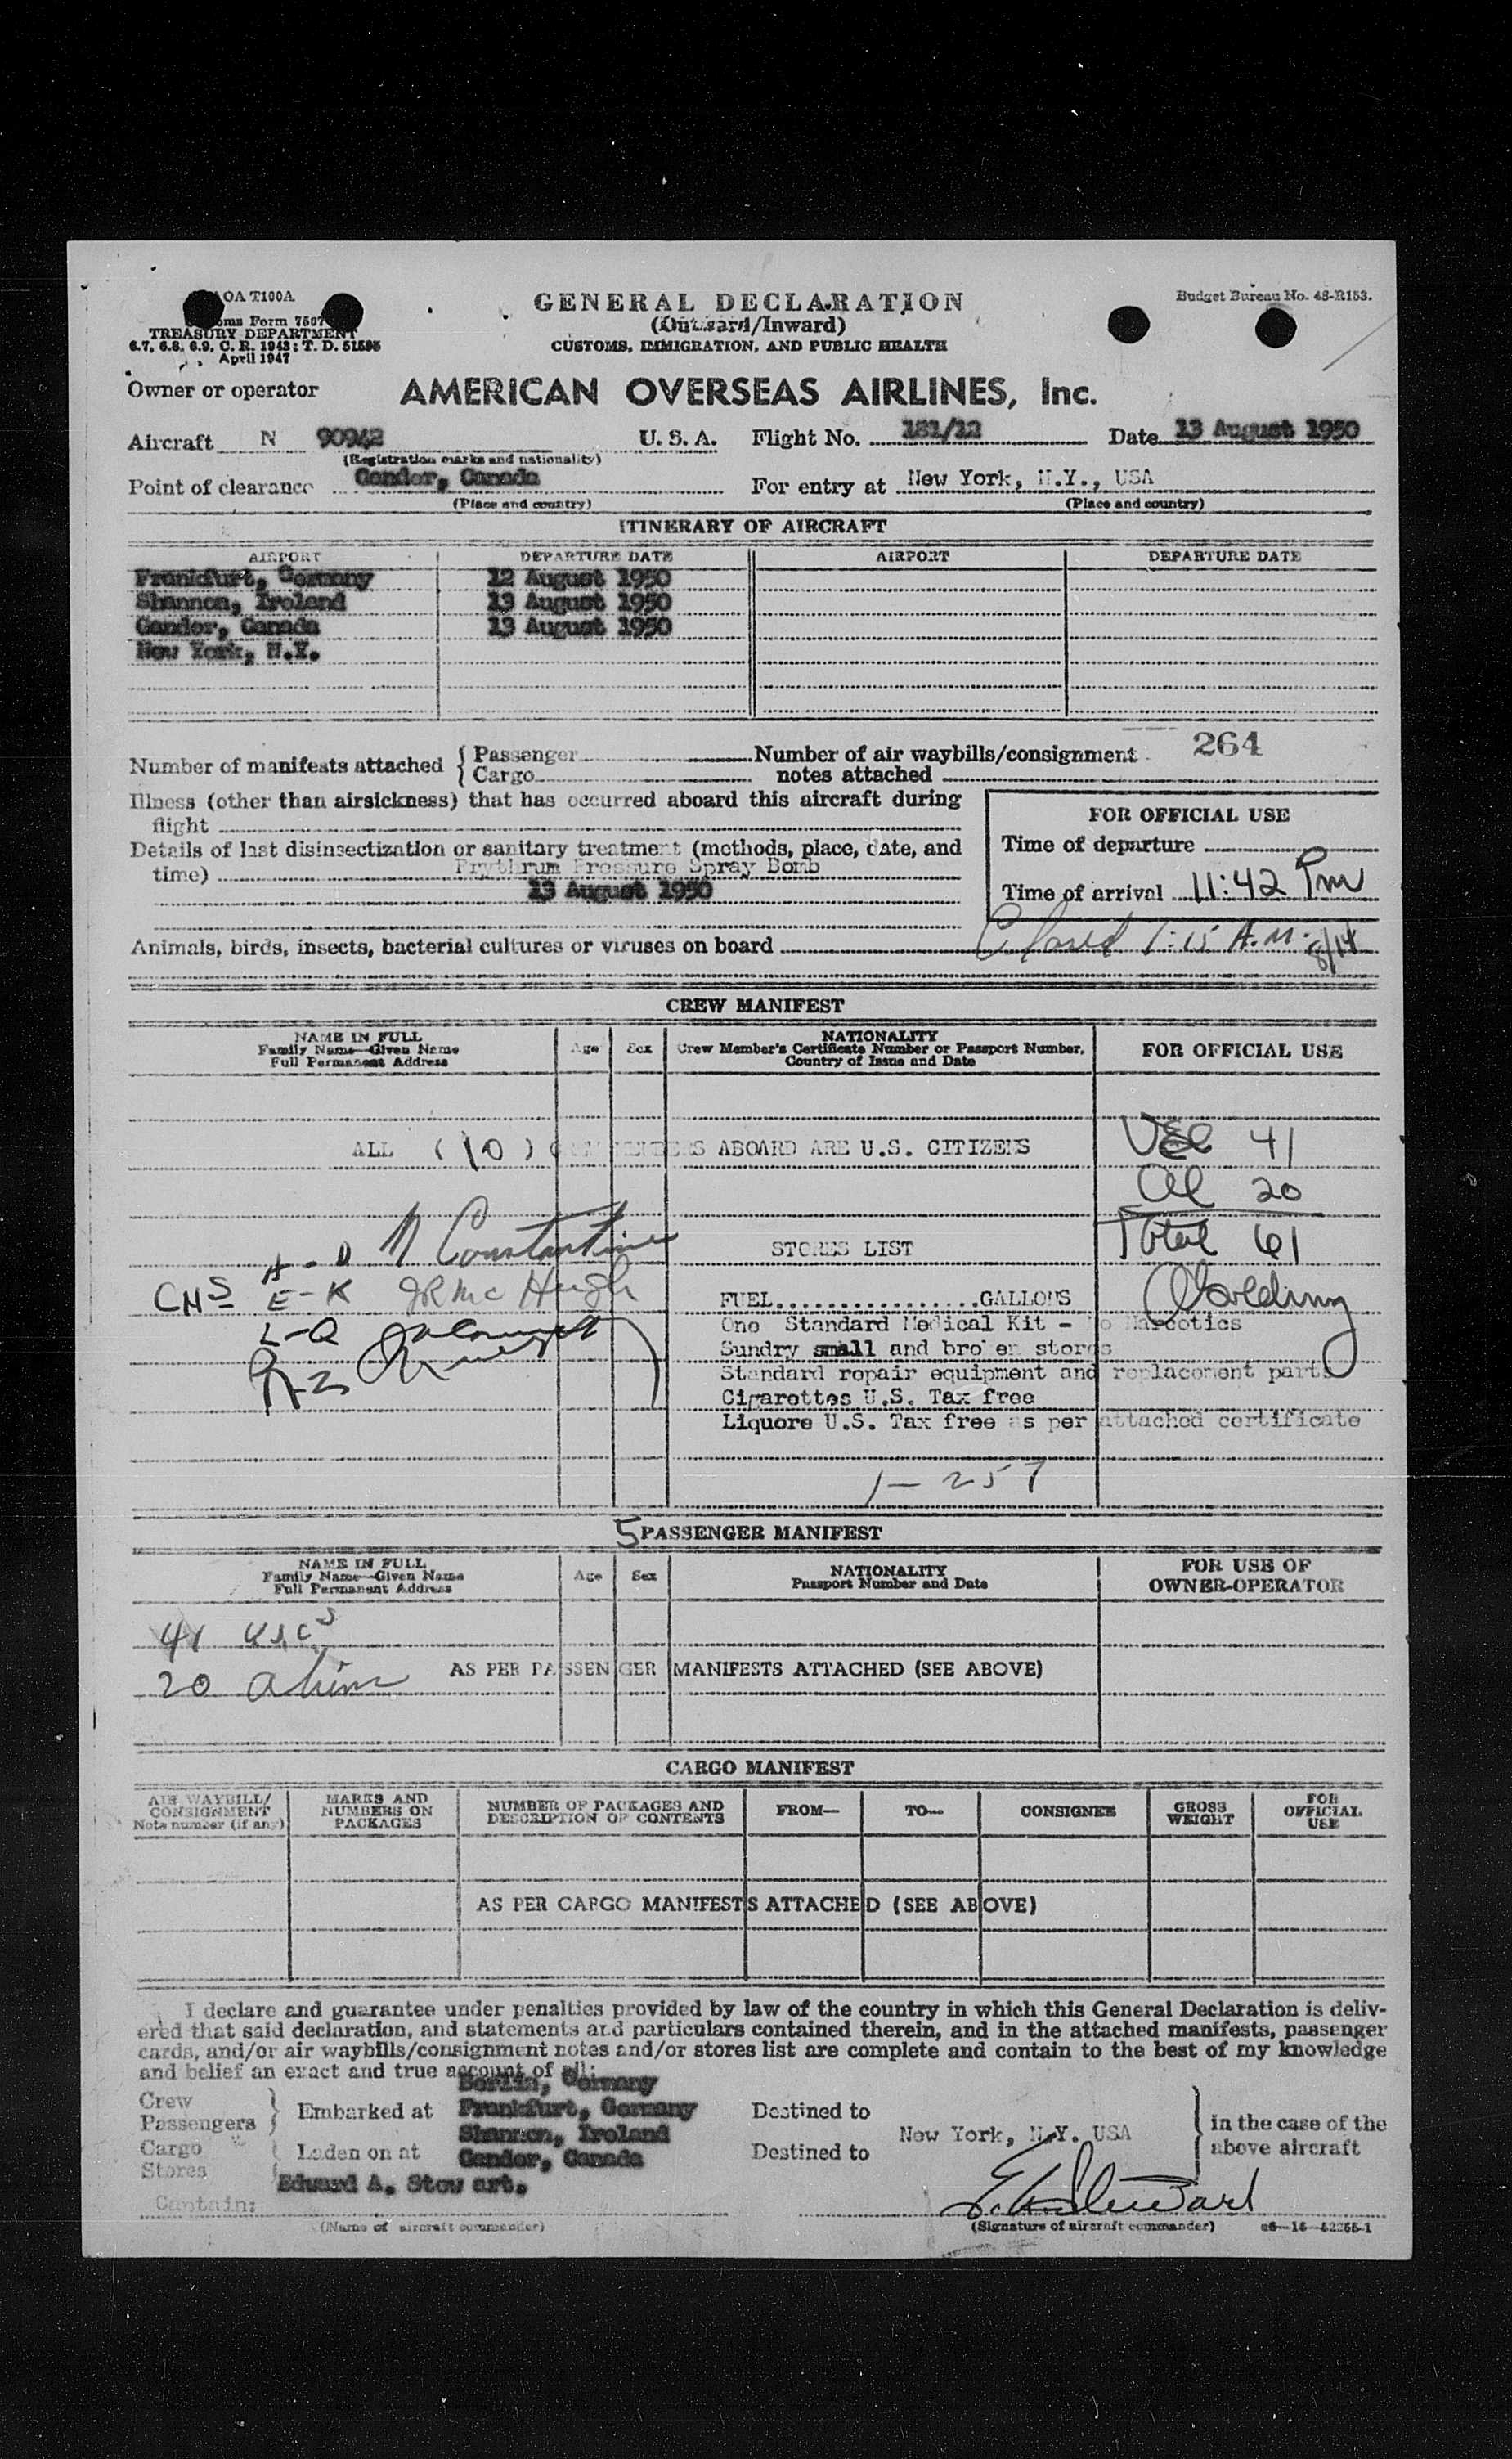 AOA T100A
Customs Form 7507
TREASURY DEPARTMENT
6.7, 6.8, 6.9, C. R. 1943; T. D. 51595
April 1947
GENERAL DECLARATION
(Outward/Inward)
CUSTOMS, IMMIGRATION, AND PUBLIC HEALTH
Budget Bureau No. 48-R153.
Owner or operator AMERICAN OVERSEAS AIRLINES, Inc.
Aircraft N 90942 U. S. A. Flight No. 181/12 Date 13 August 1950
(Registration marks and nationality)
Point of clearance Gander, Canada For entry at New York, N.Y., USA
(Place and country) (Place and country)
ITINERARY OF AIRCRAFT
AIRPORT DEPARTURE DATE AIRPORT DEPARTURE DATE
Frankfurt, Germany 12 August 1950
Shannon, Ireland 13 August 1950
Gander, Canada 13 August 1950
New York, N.Y.
264
Number of manifests attached { Passenger Number of air waybills/consignment
{ Cargo notes attached
Illness (other than airsickness) that has occurred aboard this aircraft during
flight
Details of last disinsectization or sanitary treatment (methods, place, date, and
time) Prythrum Pressure Spray Bomb
13 August 1950
FOR OFFICIAL USE
Time of departure
Time of arrival 11:42 Pm
Animals, birds, insects, bacterial cultures or viruses on board
Closed 1:15 A.M. 8/14
CREW MANIFEST
NAME IN FULL
Family Name—Given Name
Full Permanent Address
Age Sex
NATIONALITY
Crew Member's Certificate Number or Passport Number,
Country of Issue and Date
FOR OFFICIAL USE
ALL (10) CREW MEMBERS ABOARD ARE U.S. CITIZENS
41
al 20
Total 61
A - D N Constantine
CHS E-K JR McHugh
L-Q
R-Z
Golding
STORES LIST
FUEL.................GALLONS
One Standard Medical Kit - No Narcotics
Sundry small and bro en stores
Standard repair equipment and replacement parts
Cigarettes U.S. Tax free
Liquore U.S. Tax free as per attached certificate
1-257
5
PASSENGER MANIFEST
NAME IN FULL
Family Name—Given Name
Full Permanent Address
Age Sex
NATIONALITY
Passport Number and Date
FOR USE OF
OWNER-OPERATOR
41 USCs
20 Aliens
AS PER PASSENGER MANIFESTS ATTACHED (SEE ABOVE)
CARGO MANIFEST
AIR WAYBILL/
CONSIGNMENT
Note number (if any)
MARKS AND
NUMBERS ON
PACKAGES
NUMBER OF PACKAGES AND
DESCRIPTION OF CONTENTS
FROM—
TO—
CONSIGNEE
GROSS
WEIGHT
FOR
OFFICIAL
USE
AS PER CARGO MANIFESTS ATTACHED (SEE ABOVE)
I declare and guarantee under penalties provided by law of the country in which this General Declaration is deliv-
ered that said declaration, and statements and particulars contained therein, and in the attached manifests, passenger
cards, and/or air waybills/consignment notes and/or stores list are complete and contain to the best of my knowledge
and belief an exact and true account of all:
Berlin, Germany
Crew
Passengers } Embarked at Frankfurt, Germany Destined to
Shannon, Ireland New York, N.Y. USA
Cargo
Stores } Laden on at Gander, Canada Destined to
in the case of the
above aircraft
Edward A. Stew art.
Captain:
E. A. Stewart
(Name of aircraft commander) (Signature of aircraft commander) 16—52255-1